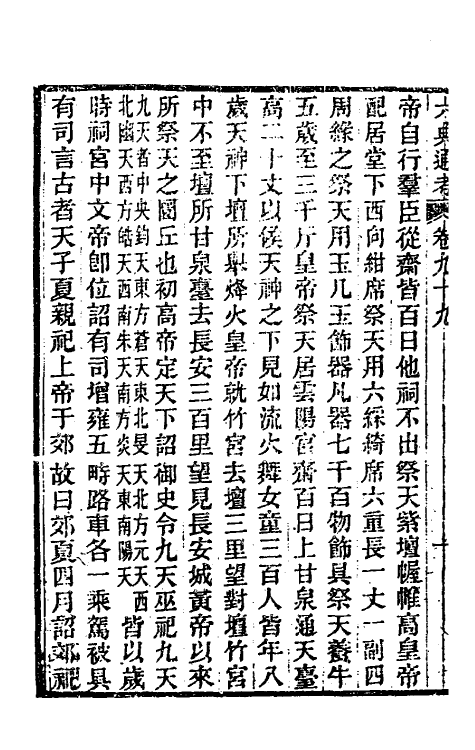 六典通考 卷九十九 十
帝自行羣臣從齋皆百日他祠不出祭天紫壇幄帷高皇帝
配居堂下西向紺席祭天用六綵綺席六重長一丈一副四
周緣之祭天用玉几玉飾器凡器七千百物飾具祭天養牛
五歲至三千斤皇帝祭天居雲陽宮齋百日上甘泉通天臺
高三十丈以候天神之下見如流火舞女童三百人皆年八
歲天神下壇所舉烽火皇帝就竹宮去壇三里望對壇竹宮
中不至壇所甘泉臺去長安三百里望見長安城黃帝以來
所祭天之圜丘也初高帝定天下詔御史令九天巫祀九天
九天者中央鈞天東方蒼天東北旻天北方元天西
北幽天西方皓天西南朱天南方炎天東南陽天
皆以歲
時祠宮中文帝卽位詔有司增雍五畤路車各一乘駕被具
有司言古者天子夏親祀上帝于郊故曰郊夏四月詔郊祀